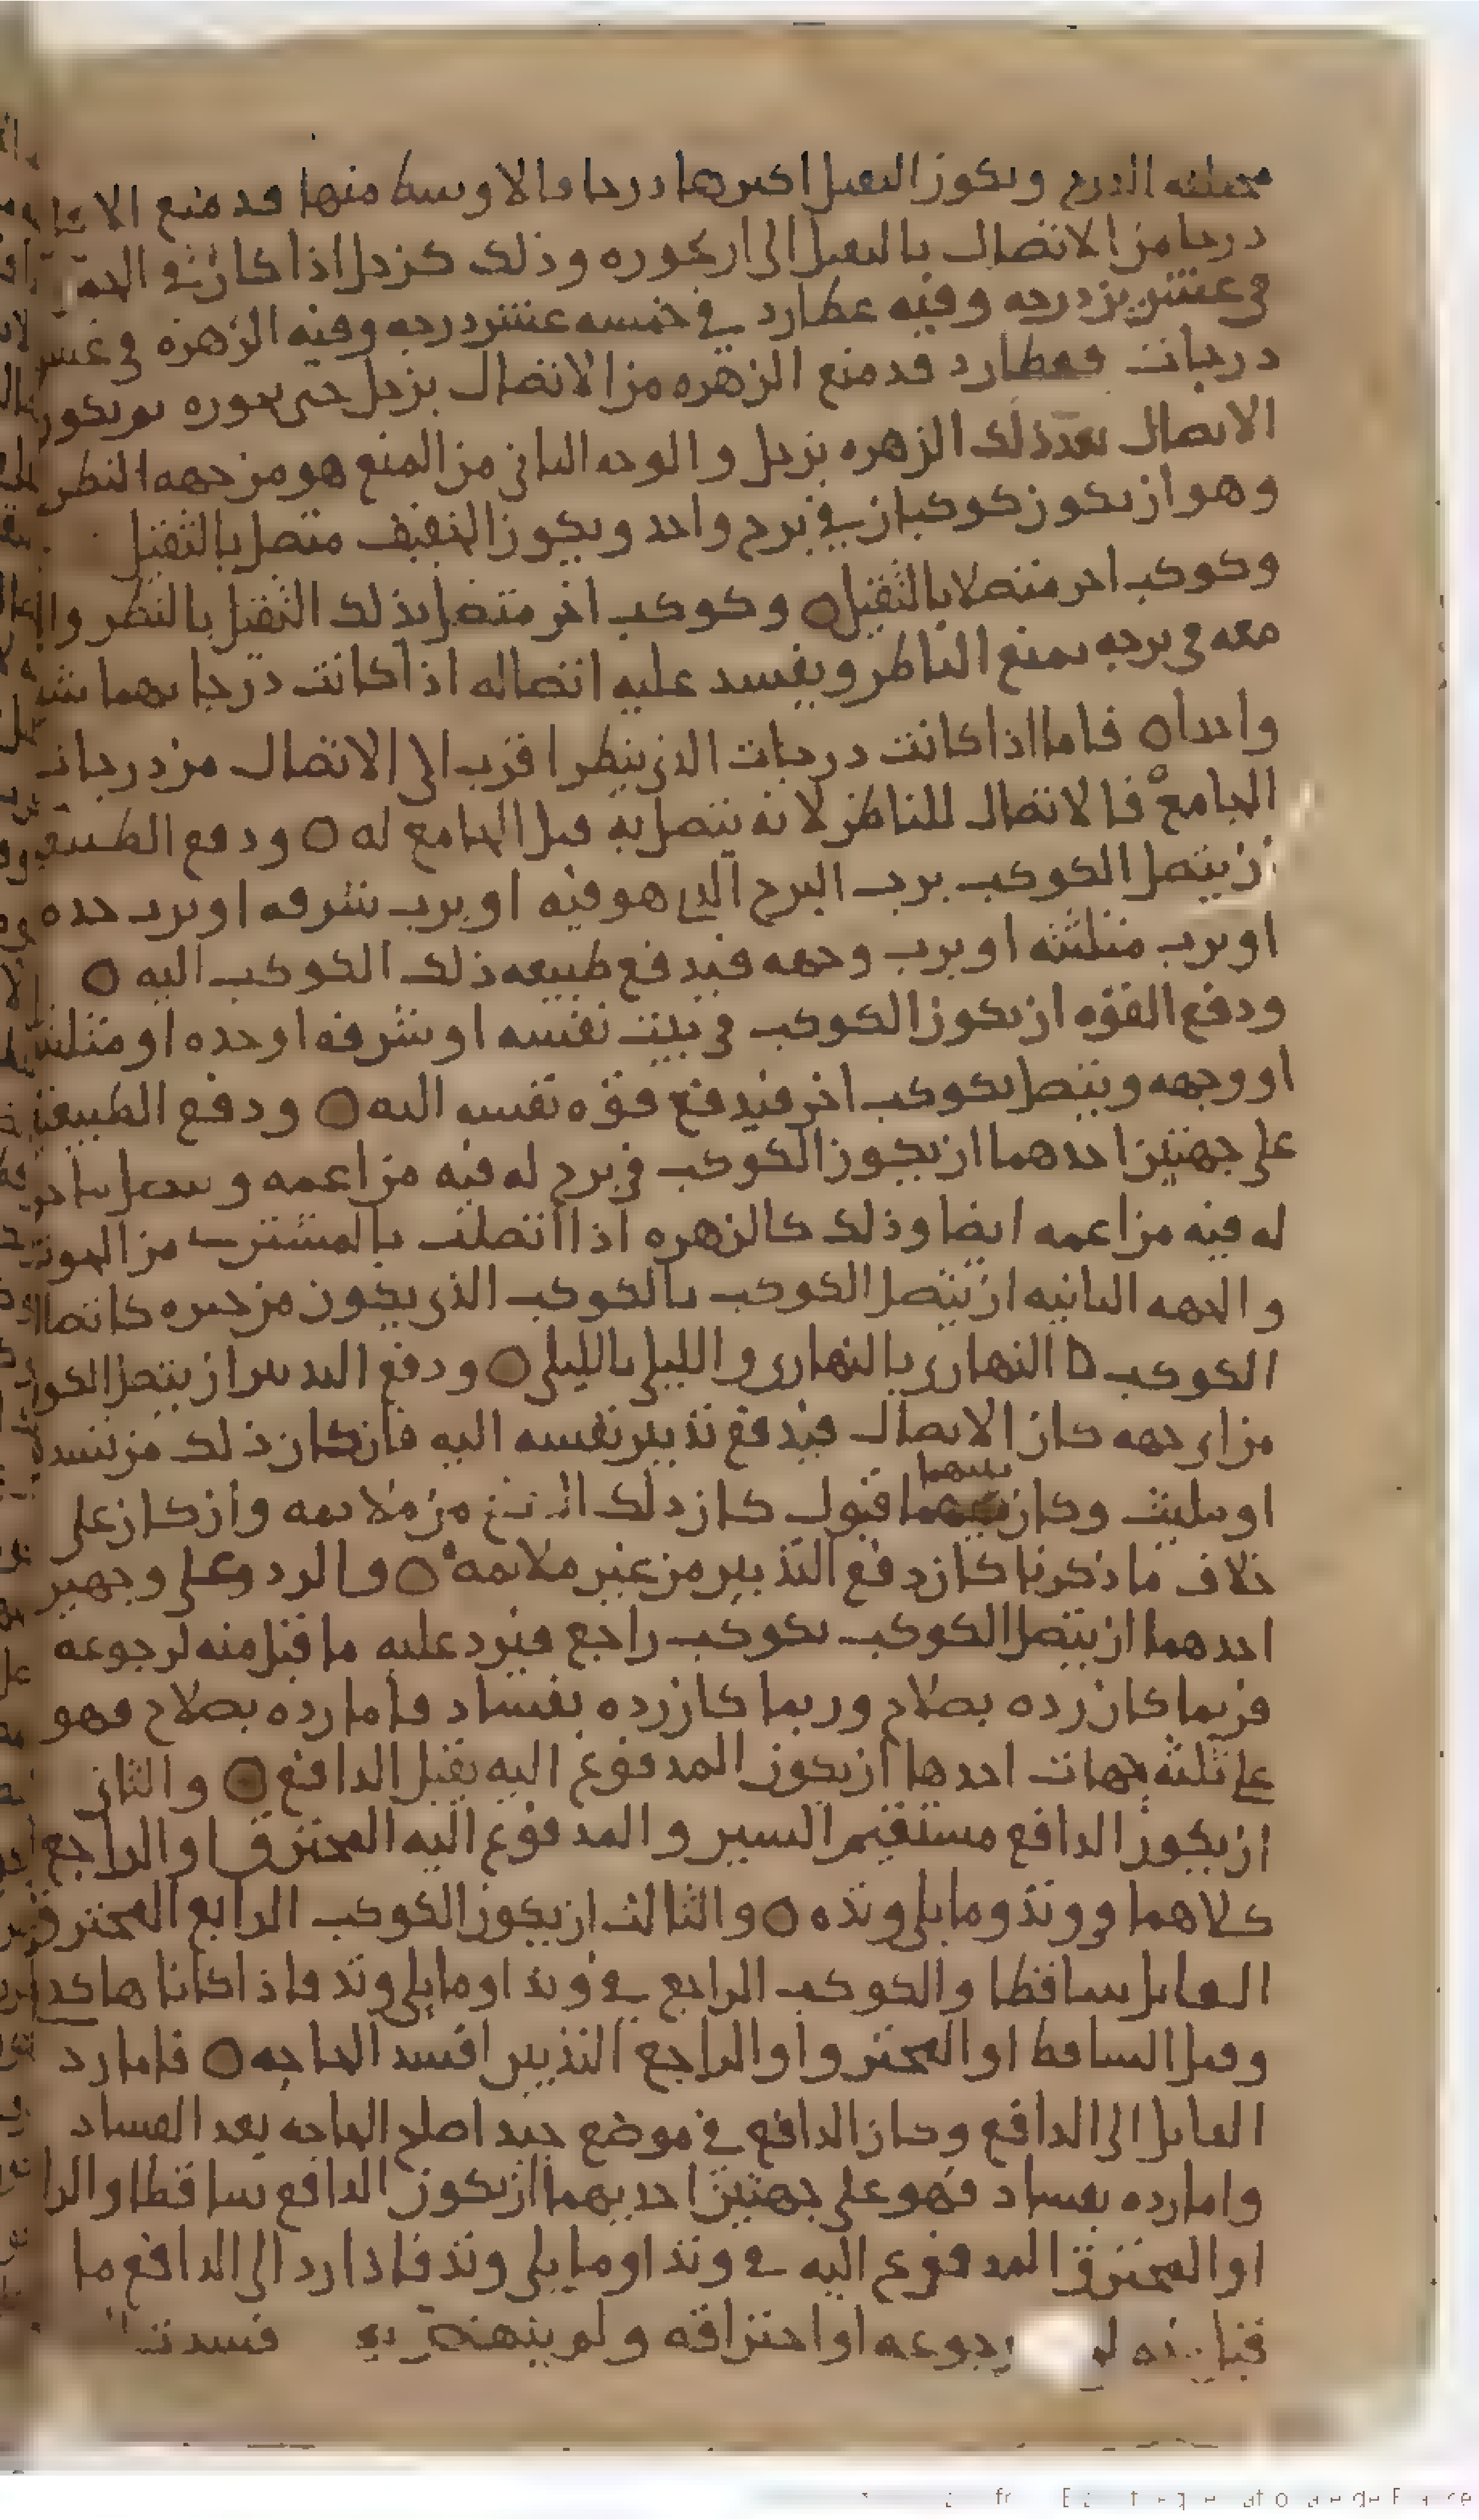 مختلفه الدرج ويكون الثقيل اكثرها درجا فالاوسط منها قد منع الاقل
درجا من الاتصال بالثقيل الى ان يجوزه وذلك كزحل اذا كان في الحمل
في عشرين درجه وفيه عطارد في خمسه عشر درجه وفيه الزهره في عشر
درجات فعطارد قد منع الزهره من الاتصال بزحل حتى يجوزه ثم يكون
الاتصال بعد ذلك الزهره بزحل والوجه الثاني من المنع هو من جهه النظر
وهو ان يكون كوكبان في برج واحد ويكون الخفيف متصل بالثقيل
وكوكب اخر متصلا بالثقيل ○ وكوكب اخر متصل بذلك الثقيل بالنظر والذي
معه في برجه يمنع الناظر ويفسد عليه اتصاله اذا كانت درجاتهما شيا
واحدا ○ فاما اذا كانت درجات الذي ينظر اقرب الى الاتصال من درجات
الجامع فالاتصال للناظر لانه يتصل به قبل الجامع له ○ ودفع الطبيعه
ان يتصل الكوكب برب البرج الذي هو فيه او برب شرفه او برب حده
او برب مثلثته او برب وجهه فيدفع طبيعه ذلك الكوكب اليه ○
ودفع القوه ان يكون الكوكب في بيت نفسه او شرفه او حده او مثلثته
او وجهه ويتصل بكوكب اخر فيدفع قوه نفسه اليه ○ ودفع الطبيعتين
على جهتين احدهما ان يكون الكوكب في برج له فيه مزاعمه ويتصل باخر
له فيه مزاعمه ايضا وذلك كالزهره اذا اتصلت بالمشتري من الحوت
والجهه الثانيه ان يتصل الكوكب بالكوكب الذي يكون من حيزه كاتصال
الكوكب النهاري بالنهاري والليلي بالليلي ○ ودفع التدبير ان يتصل الكوكب
من اي جهه كان الاتصال فيدفع تدبير نفسه اليه فان كان ذلك من تسديس
او تثليث وكان بينهما قبول كان ذلك من ملايمه وان كان على
خلاف ما ذكرنا كان دفع التدبير من غير ملايمه ○ والرد وعلى وجهين
احدهما ان يتصل الكوكب بكوكب راجع فيرد عليه ما قبل منه لرجوعه
فربما كان رده بصلاح وربما كان رده بفساد فاما رده بصلاح فهو
على ثلثه جهات احدها ان يكون المدفوع اليه يقبل الدافع ○ والثاني
ان يكون الدافع مستقيم السير والمدفوع اليه المحترق او الراجع
كلاهما في وتد وما يلي وتده ○ والثالث ان يكون الكوكب الرابع المحترق
القابل ساقطا والكوكب الراجع في وتد او ما يلي وتد فاذا كانا هاكذى
وقبل الساقط او المحترق او الراجع التدبير افسد الحاجه ○ فاما رد
القابل الى الدافع وكان الدافع في موضع جيد اصلح الحاجه بعد الفساد
واما رده بفساد فهو على جهتين احديهما ان يكون الدافع ساقطا والراجع
او المحترق المدفوع اليه في وتد او ما يلي وتد فاذا رد الى الدافع ما
قبل منه رجوعه او احتراقه ولم ينهض به فسدت